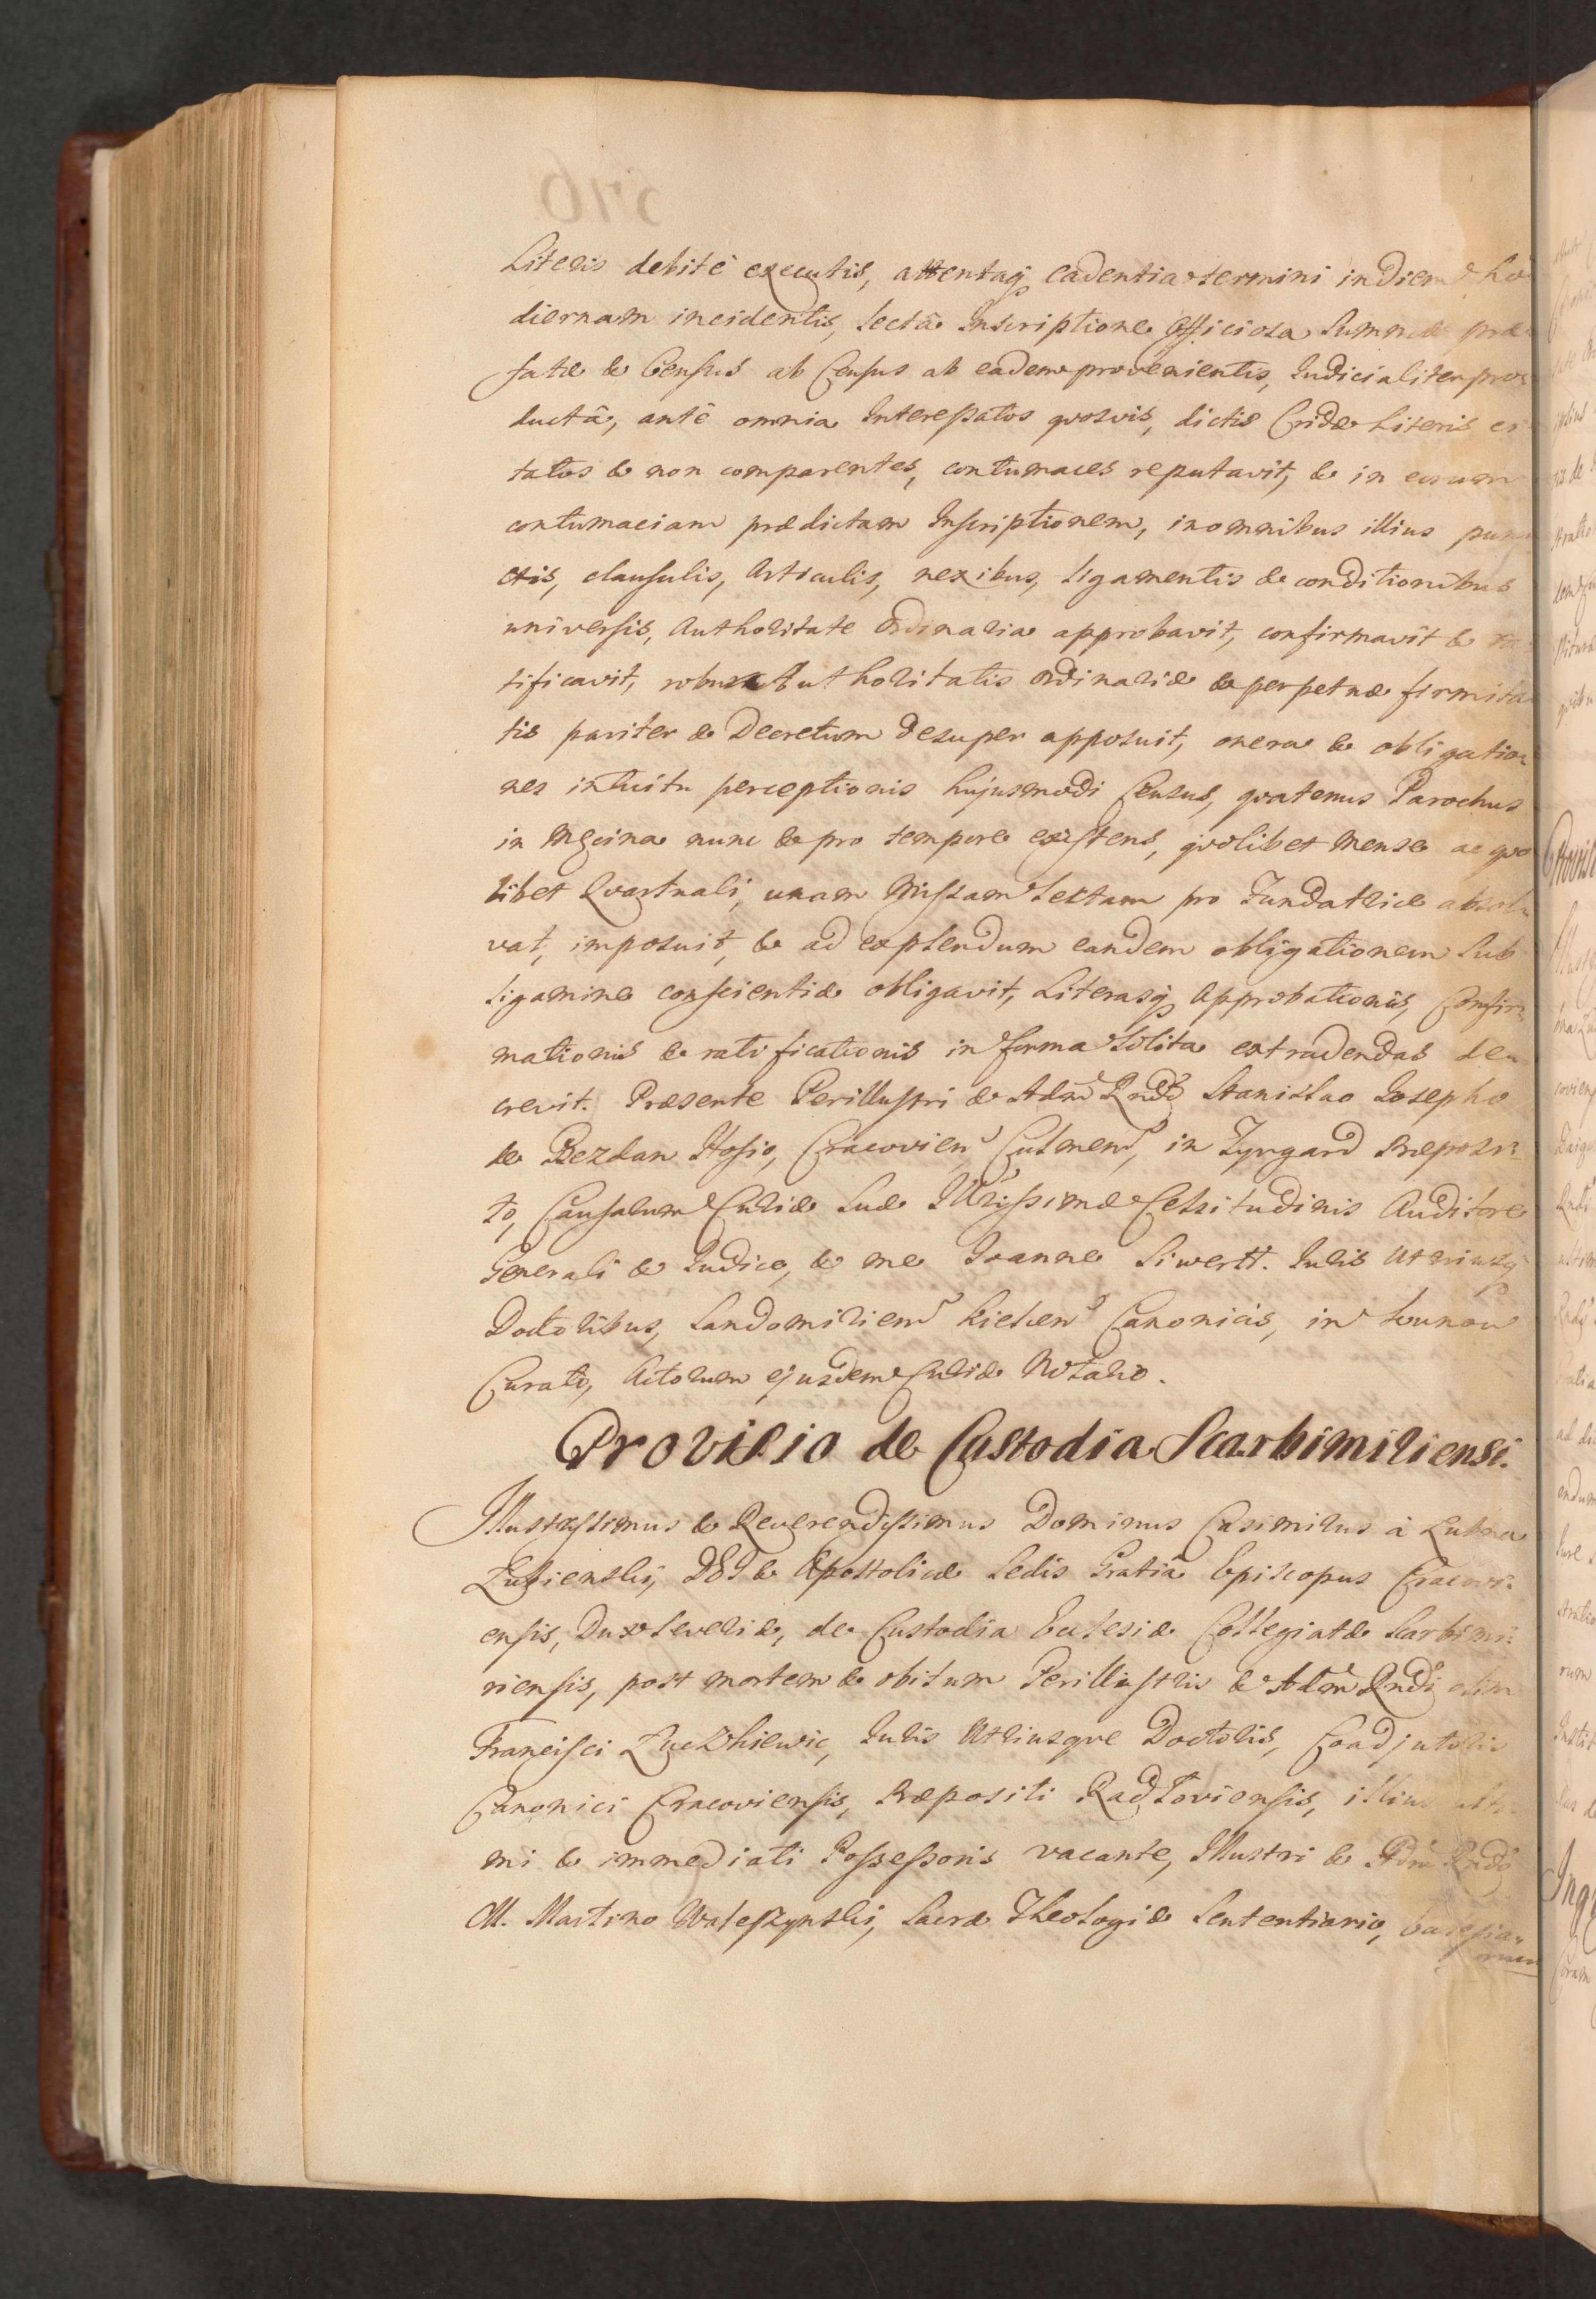 Literis debitè executis, attentaq cadentia termini in diem ho
diernam incidentis, lectâ Inscriptione Officiosa Summæ præ
fatæ & Census ab Census ab eadem provenientis, Iudicialiter pro
ductâ, antè omnia Interessatos quosvis, dictis Cridæ Literis ci
tatos & non comparentes, contumaces reputavit, & in eorum
contumaciam prædictam Inscriptionem, in omnibus illius pun
ctis, clausulis, Articulis, nexibus, ligamentis & conditionibus
universis, Authoritate Ordinaria approbavit, confirmavit & ra
tificavit, robur Authoritatis ordinariæ & perpetuæ firmita
tis pariter & Decretum desuper apposuit, onera & obligatio
nes intuitu perceptionis hujusmodi Census, quatenus Parochus
in Mgcina nunc & pro tempore existens, quolibet Mense ac quo
libet Quartuali, unam Missam lectam pro Fundatrice absol
vat, imposuit, & ad explendum eandem obligationem sub
ligamine conscientiæ obligavit, Literasq Approbationis, Confir
mationis & ratificationis in forma solita extradendas de
crevit. Præsente Perillustri & Adm Rndo Stanislao Iosepho
de Bezdan Hosio, Cracovien, Culmen, in Zyrgard Præposi
to, Causarum Curiæ Suæ Illrissimæ Celsitudinis Auditore
Generali & Iudice, & me Ioanne Siwertt. Iuris Utriusq
Doctoribus, Sandomirien Kielcen Canonicis, in
Curato, Actorum ejusdem Curiæ Notario.
Provisio de Custodia Scarbimiriensi.
Illustrissimus & Reverendissimus Dominus Casimirus à Lubna
Łubienski, DEI & Apostolicæ Sedis Gratiâ Episcopus Cracovi
ensis, Dux Severiæ, de Custodia Ecclesiæ Collegiatæ Scarbimi
riensis, post mortem & obitum Perillustris & Adm Rndi olim
Francisci Zuczkiewic, Iuris Utriusque Doctoris, Coadjutoris
Canonici Cracoviensis, Præpositi Radłoviensis, illius ulti
mi & immediati Possessoris vacante, Illustri & Adm Rndo
M. Martino Waleszynski, Sacræ Theologiæ Sententiario, Ecclesia
rum